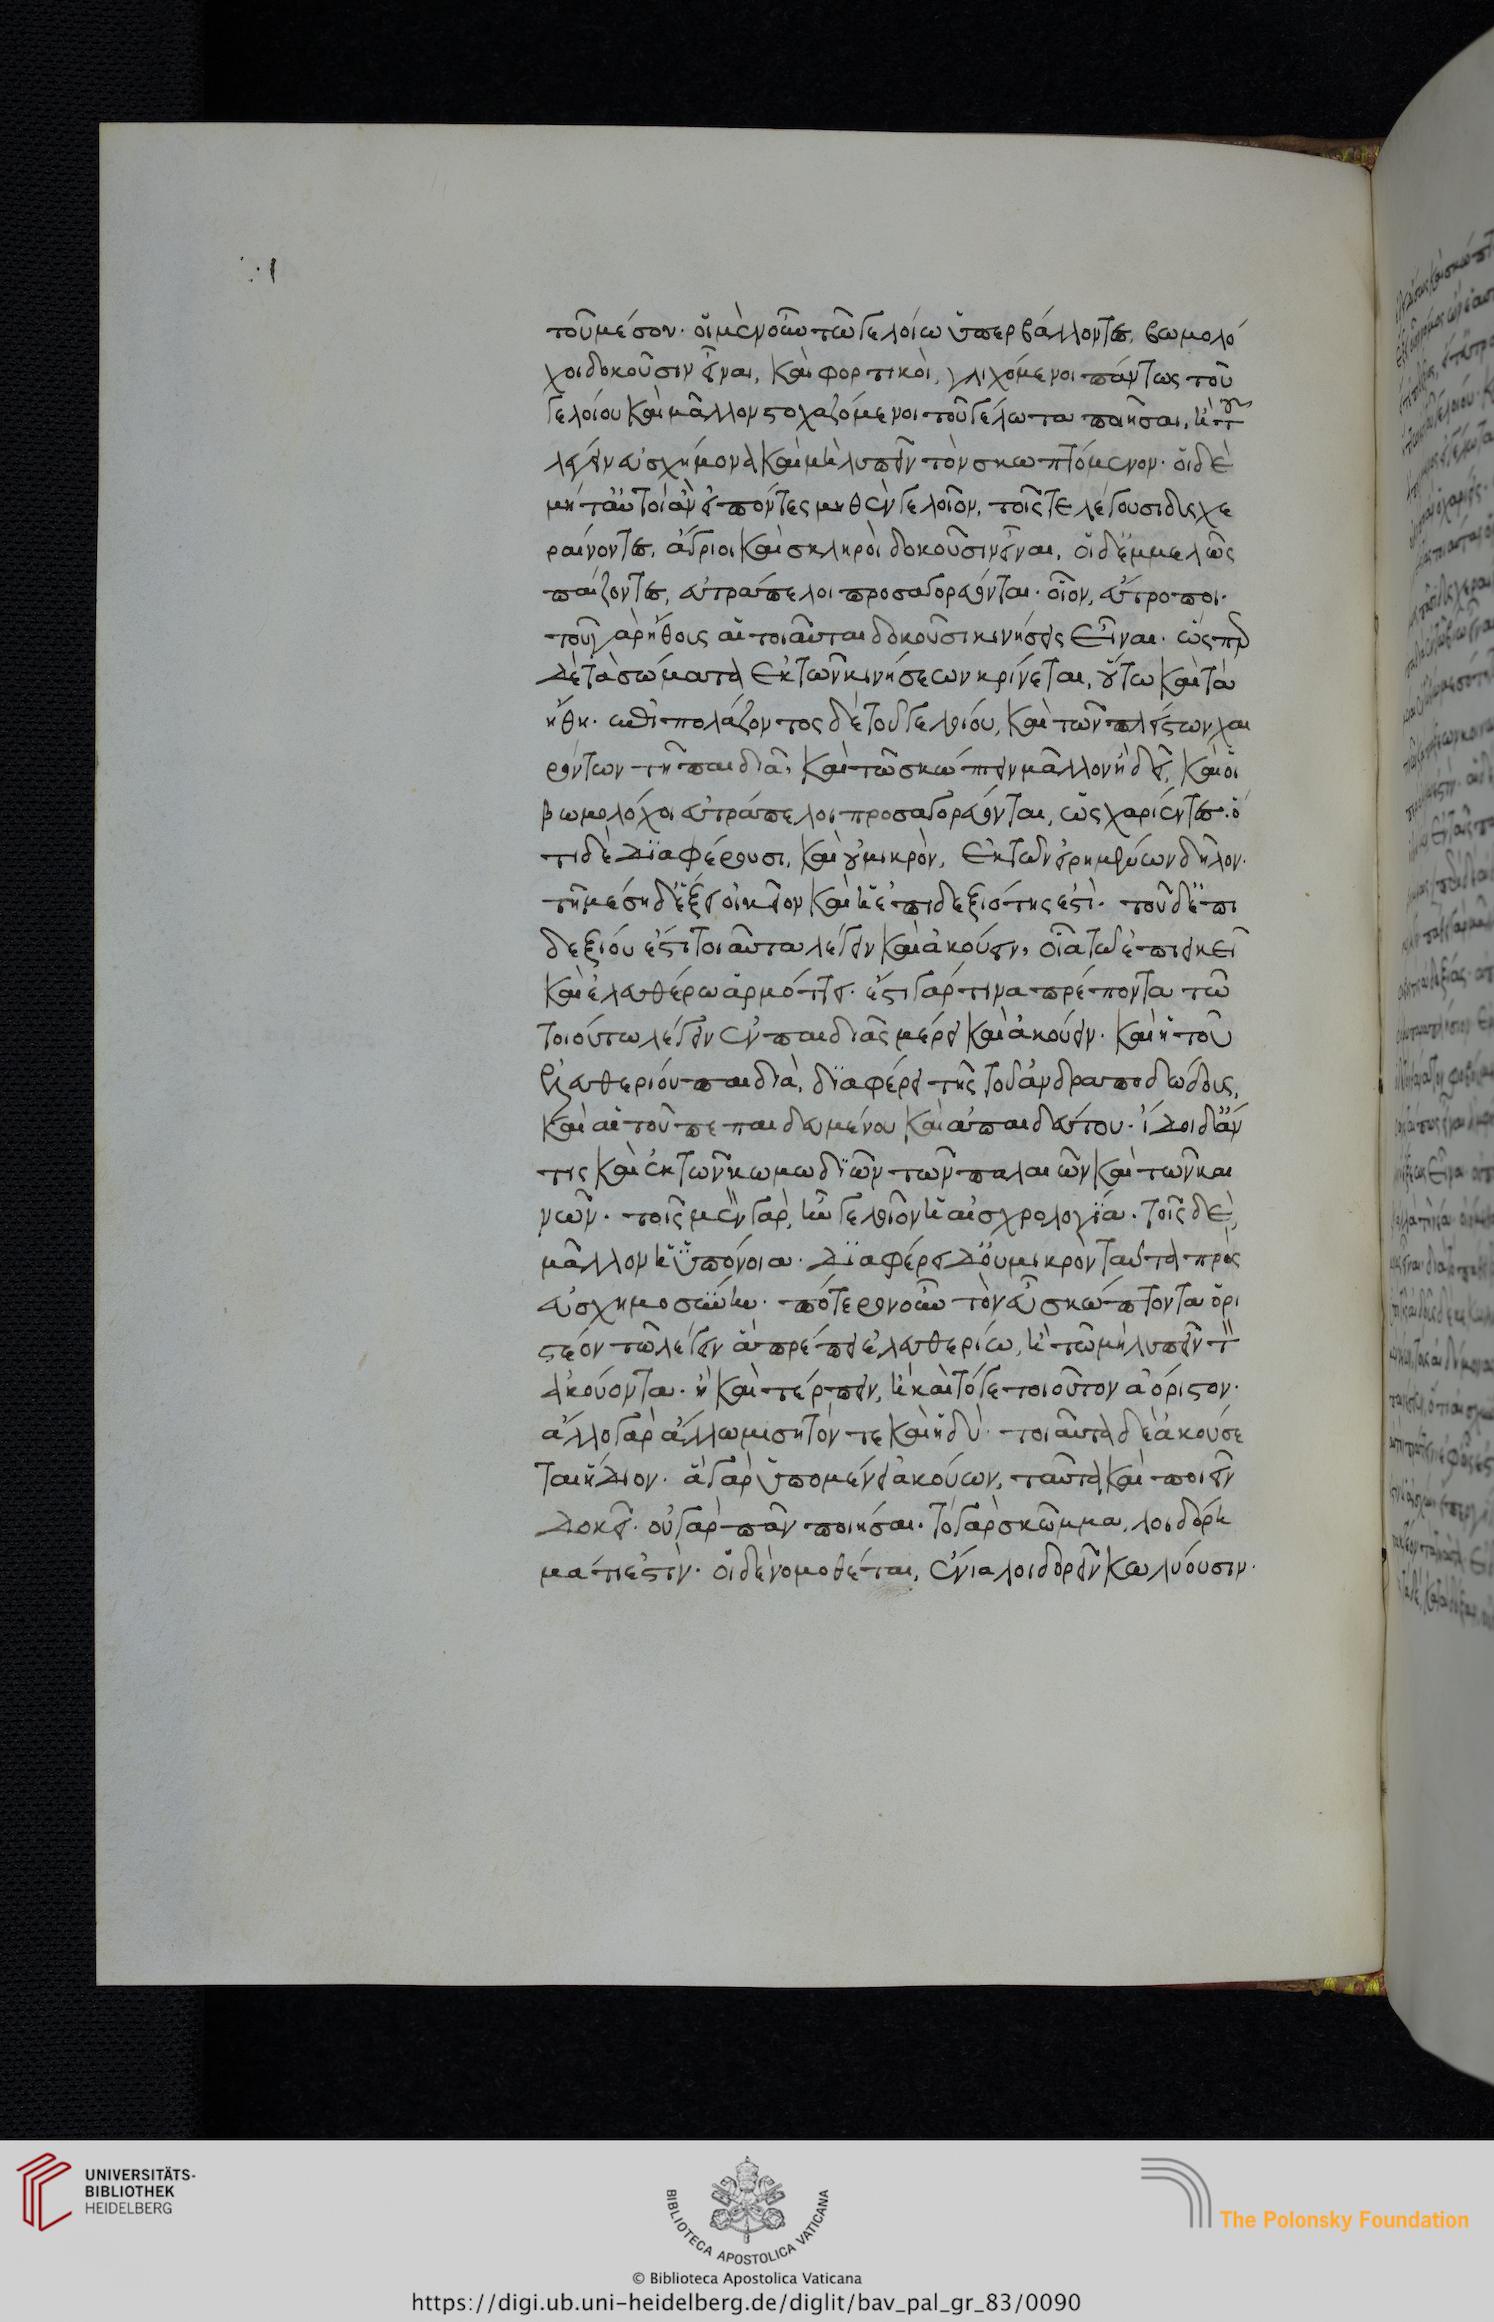 τοῦ μέσον. οἱ μὲν οὖν τῶ γελοίω ὑπερβάλλοντες, βωμολό
χοι δοκοῦσιν εἶναι, καὶ φορτικοὶ, γλιχόμενοι πάντως τοῦ
γελοίου καὶ μᾶλλον στοχαζόμενοι τοῦ γέλωτα ποιῆσαι, ἢ τοῦ
λέγειν εὐσχήμονα καὶ μὴ λυπεῖν τὸν σκωπτόμενον. οἱ δὲ
μήτ' αὐτοὶ ἂν εἰπόντες μηθὲν γελοῖον, τοῖς τε λέγουσι δυσχε
ραίνοντες, ἄγριοι καὶ σκληροὶ δοκοῦσιν εἶναι, οἱ δ' ἐμμελῶς
παίζοντες, εὐτράπελοι προσαγορεύονται. οἷον, εὔτροποι.
τοῦ γὰρ ἤθους αἱ τοιαῦται δοκοῦσι κινήσεις εἶναι. ὥσπερ
δὲ τὰ σώματα ἐκ τῶν κινήσεων κρίνεται, οὕτω καὶ τὰ
ἤθη. ἐπιπολάζοντος δὲ τοῦ γελοίου, καὶ τῶν πλείστων χαι
ρόντων τῆ παιδιᾶ, καὶ τῶ σκώπτειν μᾶλλον ἢ δεῖ, καὶ οἱ
βωμολόχοι εὐτράπελοι προσαγορεύονται, ὡς χαρίεντες. ὅ
τι δὲ διαφέρουσι, καὶ οὐ μικρὸν, ἐκ τῶν εἰρημένων δῆλον.
τῆ μέση δ' ἕξει οἰκεῖον καὶ ἡ ἐπιδεξιότης ἐστὶ. τοῦ δ' ἐπι
δεξίου ἐστὶ τοιαῦτα λέγειν καὶ ἀκούειν, οἷα τῶ ἐπιεικεῖ
καὶ ἐλευθέρω ἁρμόττει. ἔστι γάρ τινα πρέποντα τῶ
τοιούτω λέγειν ἐν παιδιᾶς μέρει καὶ ἀκούειν. καὶ ἡ τοῦ
ἐλευθερίου παιδιὰ, διαφέρει τῆς τοῦ ἀνδραποδώδους,
καὶ αὖ τοῦ πεπαιδευμένου καὶ ἀπαιδεύτου. ἴδοι δ' ἄν
τις καὶ ἐκ τῶν κωμωδιῶν τῶν παλαιῶν καὶ τῶν και
νῶν. τοῖς μὲν γὰρ, ἦν γελοῖον ἡ αἰσχρολογία. τοῖς δὲ,
μᾶλλον ἡ ὑπόνοια. διαφέρει δ' οὐ μικρὸν ταῦτα πρὸς
εὐσχημοσύνην. πότερον οὖν τὸν εὖ σκώπτοντα ὁρι
στέον τῶ λέγειν ἃ πρέπει ἐλευθερίω, ἢ τῶ μὴ λυπεῖν τὸν
ἀκούοντα. ἢ καὶ τέρπειν, ἢ καὶ τό γε τοιοῦτον ἀόριστον.
ἄλλο γὰρ ἄλλω μισητόν τε καὶ ἡδὺ. τοιαῦτα δὲ ἀκούσε
ται ἥδιον. ἃ γὰρ ὑπομένει ἀκούων, ταῦτα καὶ ποιεῖν
δοκεῖ. οὐ γὰρ πᾶν ποιήσαι. τὸ γὰρ σκῶμμα, λοιδόρη
μά τι ἐστὶν. οἱ δὲ νομοθέται, ἔνια λοιδορεῖν κωλύουσιν.
UNIVERSITÄTS-
BIBLIOTHEK
HEIDELBERG
BIBLIOTECA APOSTOLICA VATICANA
The Polonsky Foundation
© Biblioteca Apostolica Vaticana
https://digi.ub.uni-heidelberg.de/diglit/bav_pal_gr_83/0090